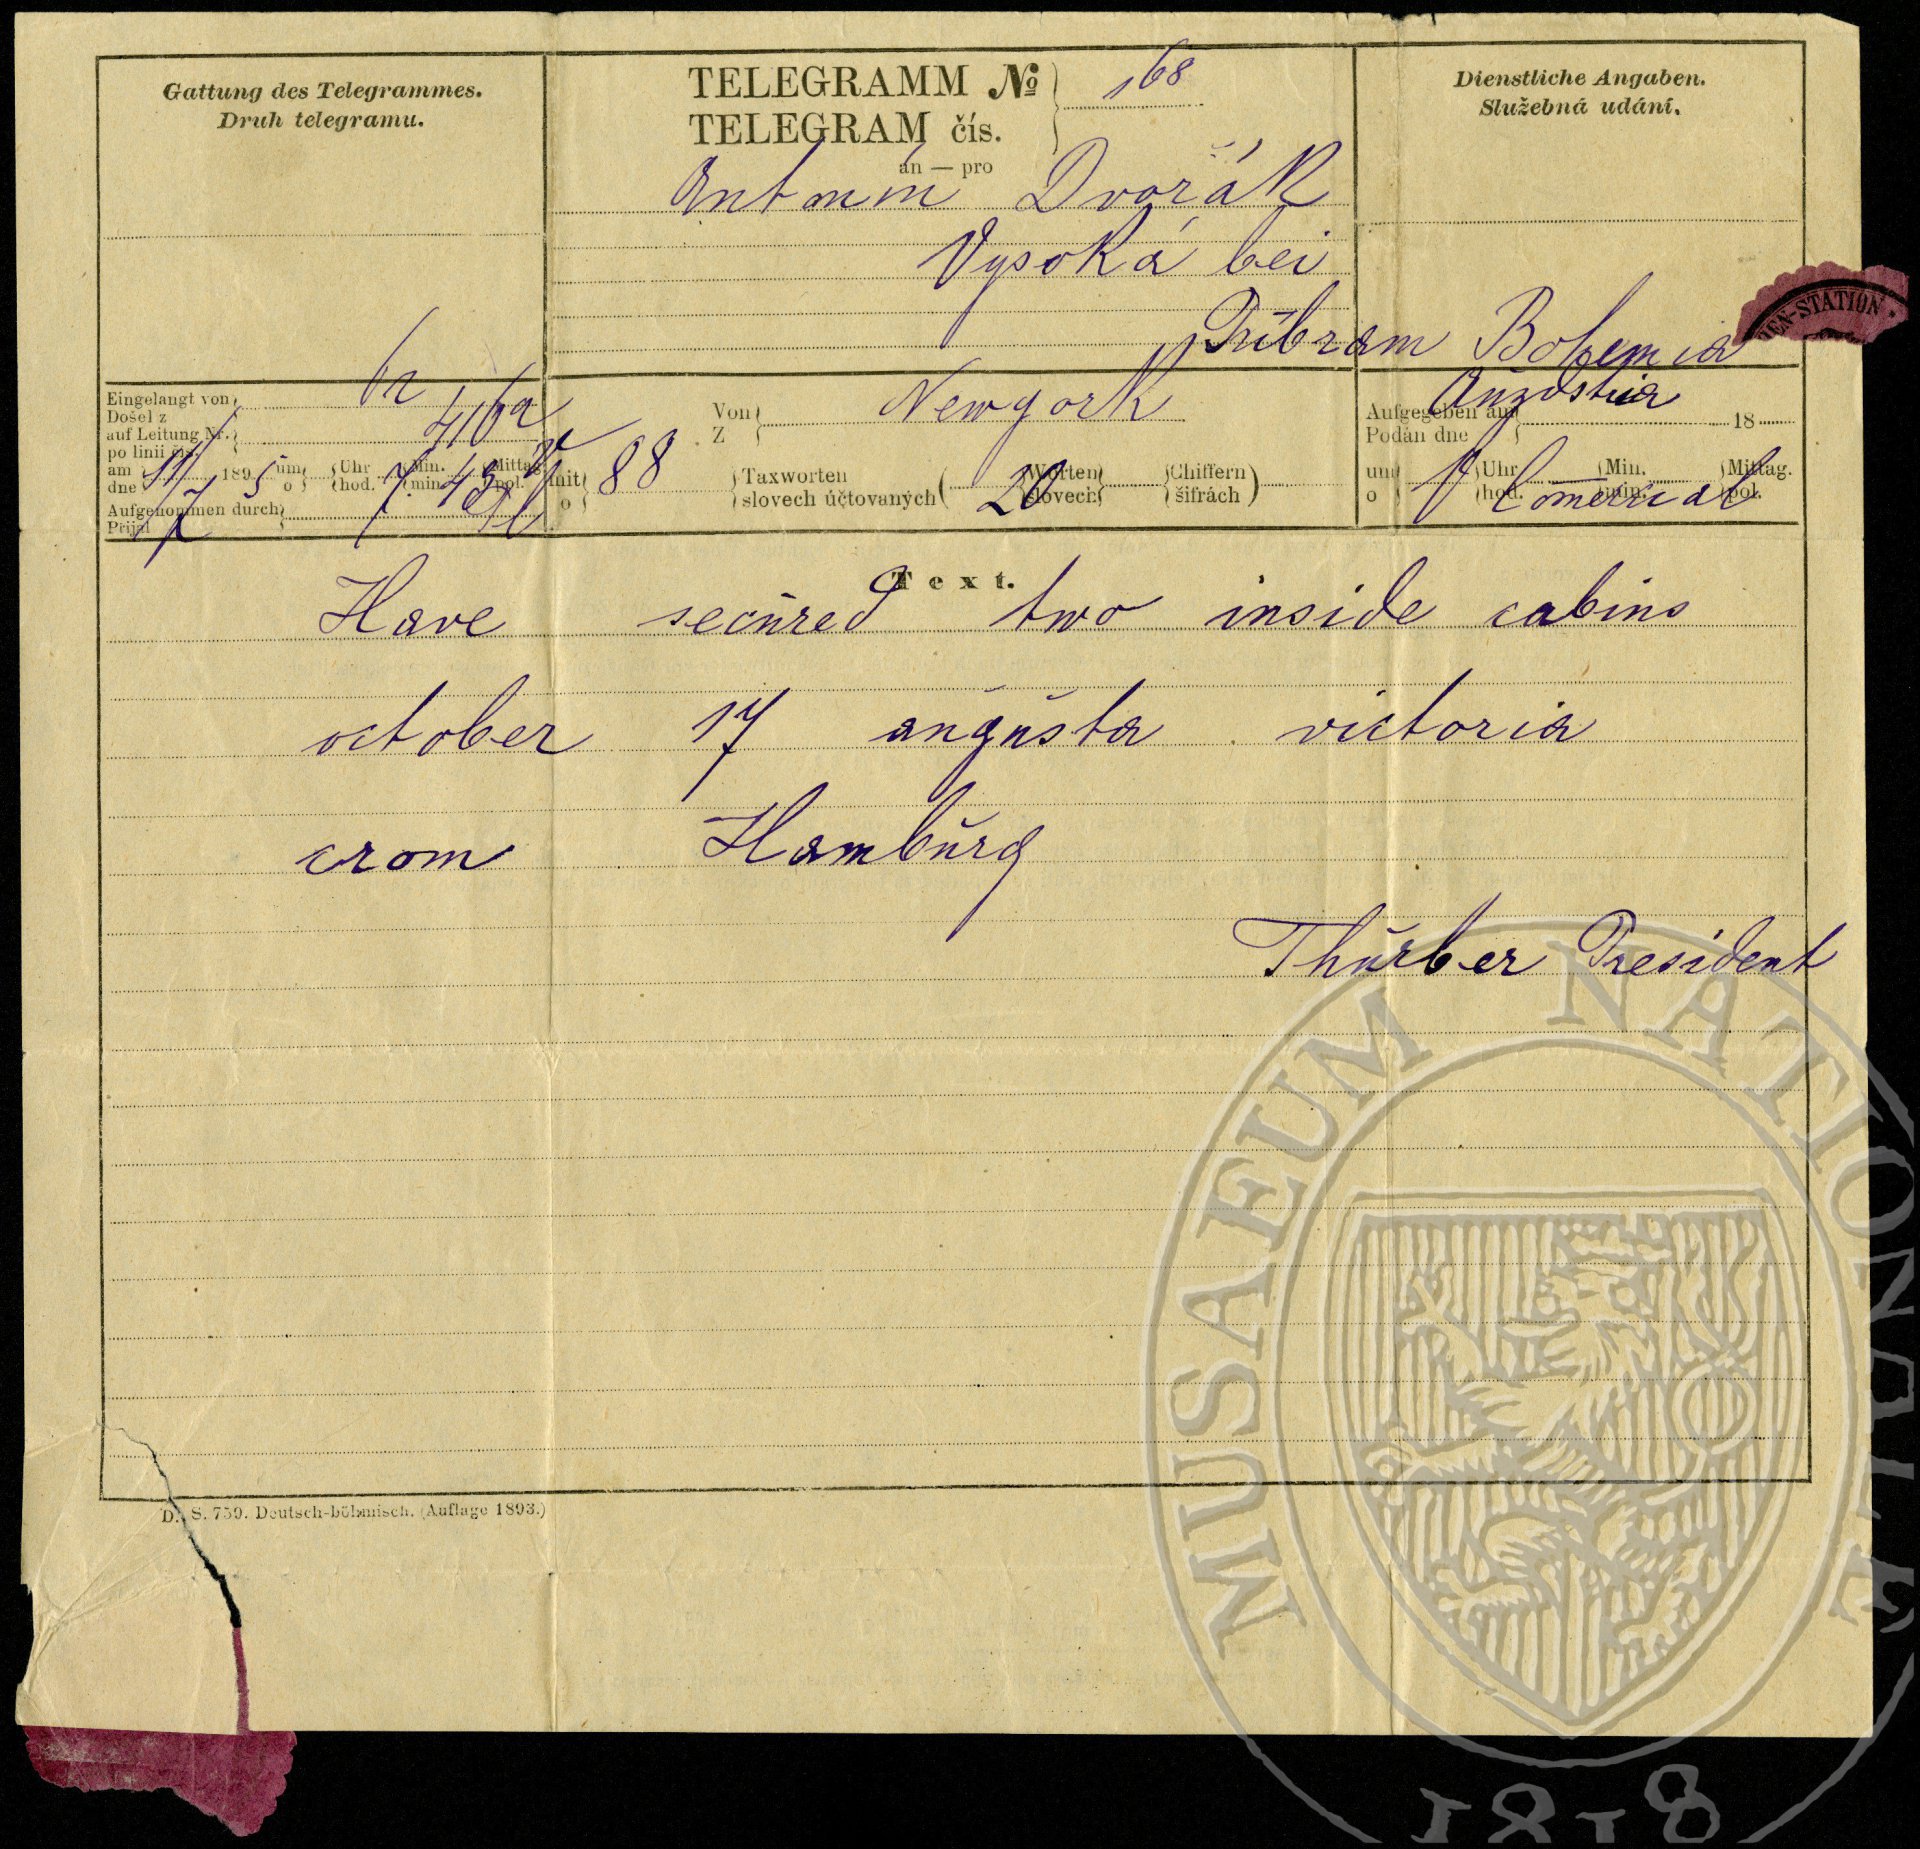 Gattung des Telegrammes.
Druh telegramu.
TELEGRAMM No
TELEGRAM čís.
168
an — pro
Dienstliche Angaben.
Služebná udání.
Antonín Dvořák
Vysoká bei
Příbram Bohemia
Austria
EN-STATION
Eingelangt von
Došel z
auf Leitung Nr.
po linii čís.
am
dne
11/7 1895 um
o
Uhr
hod.
7 Min.
min. 43 Mittag
pol.
Aufgenommen durch
Přijal
Von
Z
Newyork
mit
o
88
Taxworten
slovech účtovaných
( 20 Worten
slovech
Chiffern
šifrách )
Aufgegeben am
Podán dne
18
um
o
Uhr
hod.
Min.
min.
Mittag.
pol.
V Comercial
Text.
Have secured two inside cabins
october 17 augusta victoria
crom Hamburg
Thurber President
D. S. 759. Deutsch-böhmisch. (Auflage 1893.)
MUSAEUM NATIONALE
1818